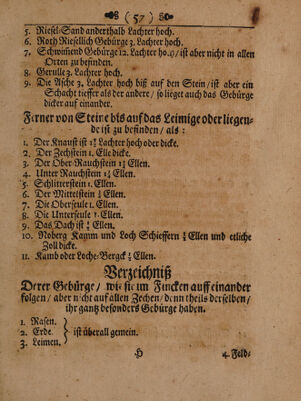 ( 57 )
5. Riesel-Sand anderthalb Lachter hoch.
6. Roth Riesellich Gebürge 3. Lachter hoch.
7. Schwimend Gebürge 12. Lachter ho.9/ ist aber nicht in allen
Orten zu befinden.
8. Gerulle 3. Lachter hoch.
9. Die Asche 3. Lachter hoch biß auf den Stein/ ist aber ein
Schacht tieffer als der andere / so lieget auch das Gebürge
dicker auf einander.
Ferner von Steine bis auf das Leimige oder liegen-
de ist zu befinden/ als:
1. Der Knaust ist Lachter hoch oder dicke.
2. Der Zechstein 1. Elle dicke.
3. Der Ober-Rauchstein Ellen.
4. Unter Rauchstein Ellen.
5. Schlitterstein Ellen.
6. Der Mittelstein Ellen.
7. Die Oberseule 1. Ellen.
8. Die Unterseule Ellen.
9. Das Dach ist Ellen.
10. Noberg Kamm und Loch Schieffern Ellen und etliche
Zoll dicke.
11. Kamb oder Loche-Bergck Ellen.
Verzeichniß
Derer Gebürge/ wie sie im Fincken auff einander
folgen/ aber nicht auf allen Zechen/ denn theils derselben/
ihr gantz besonders Gebürge haben.
1. Rasen.
2. Erde. ist überall gemein.
3. Leimen.
H 4. Feld-